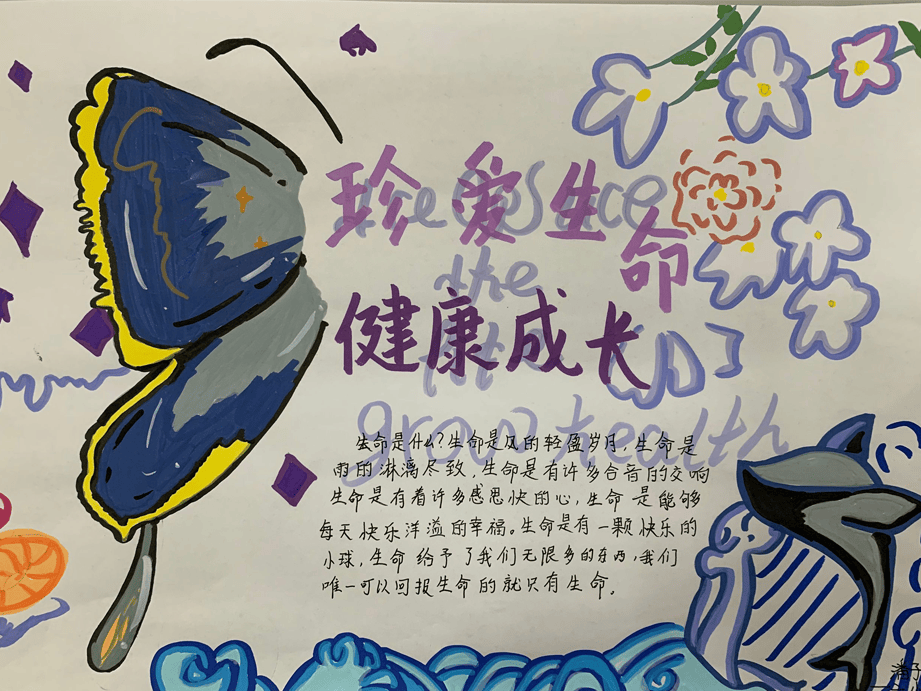 珍爱生命
健康成长
the
growhealth
生命是什么?生命是风的轻盈岁月,生命是
雨的淋漓尽致,生命是有许多合音的交响
生命是有着许多感思快的心,生命是能够
每天快乐洋溢的幸福。生命是有一颗快乐的
小球,生命给予了我们无限多的东西,我们
唯一可以回报生命的就只有生命。